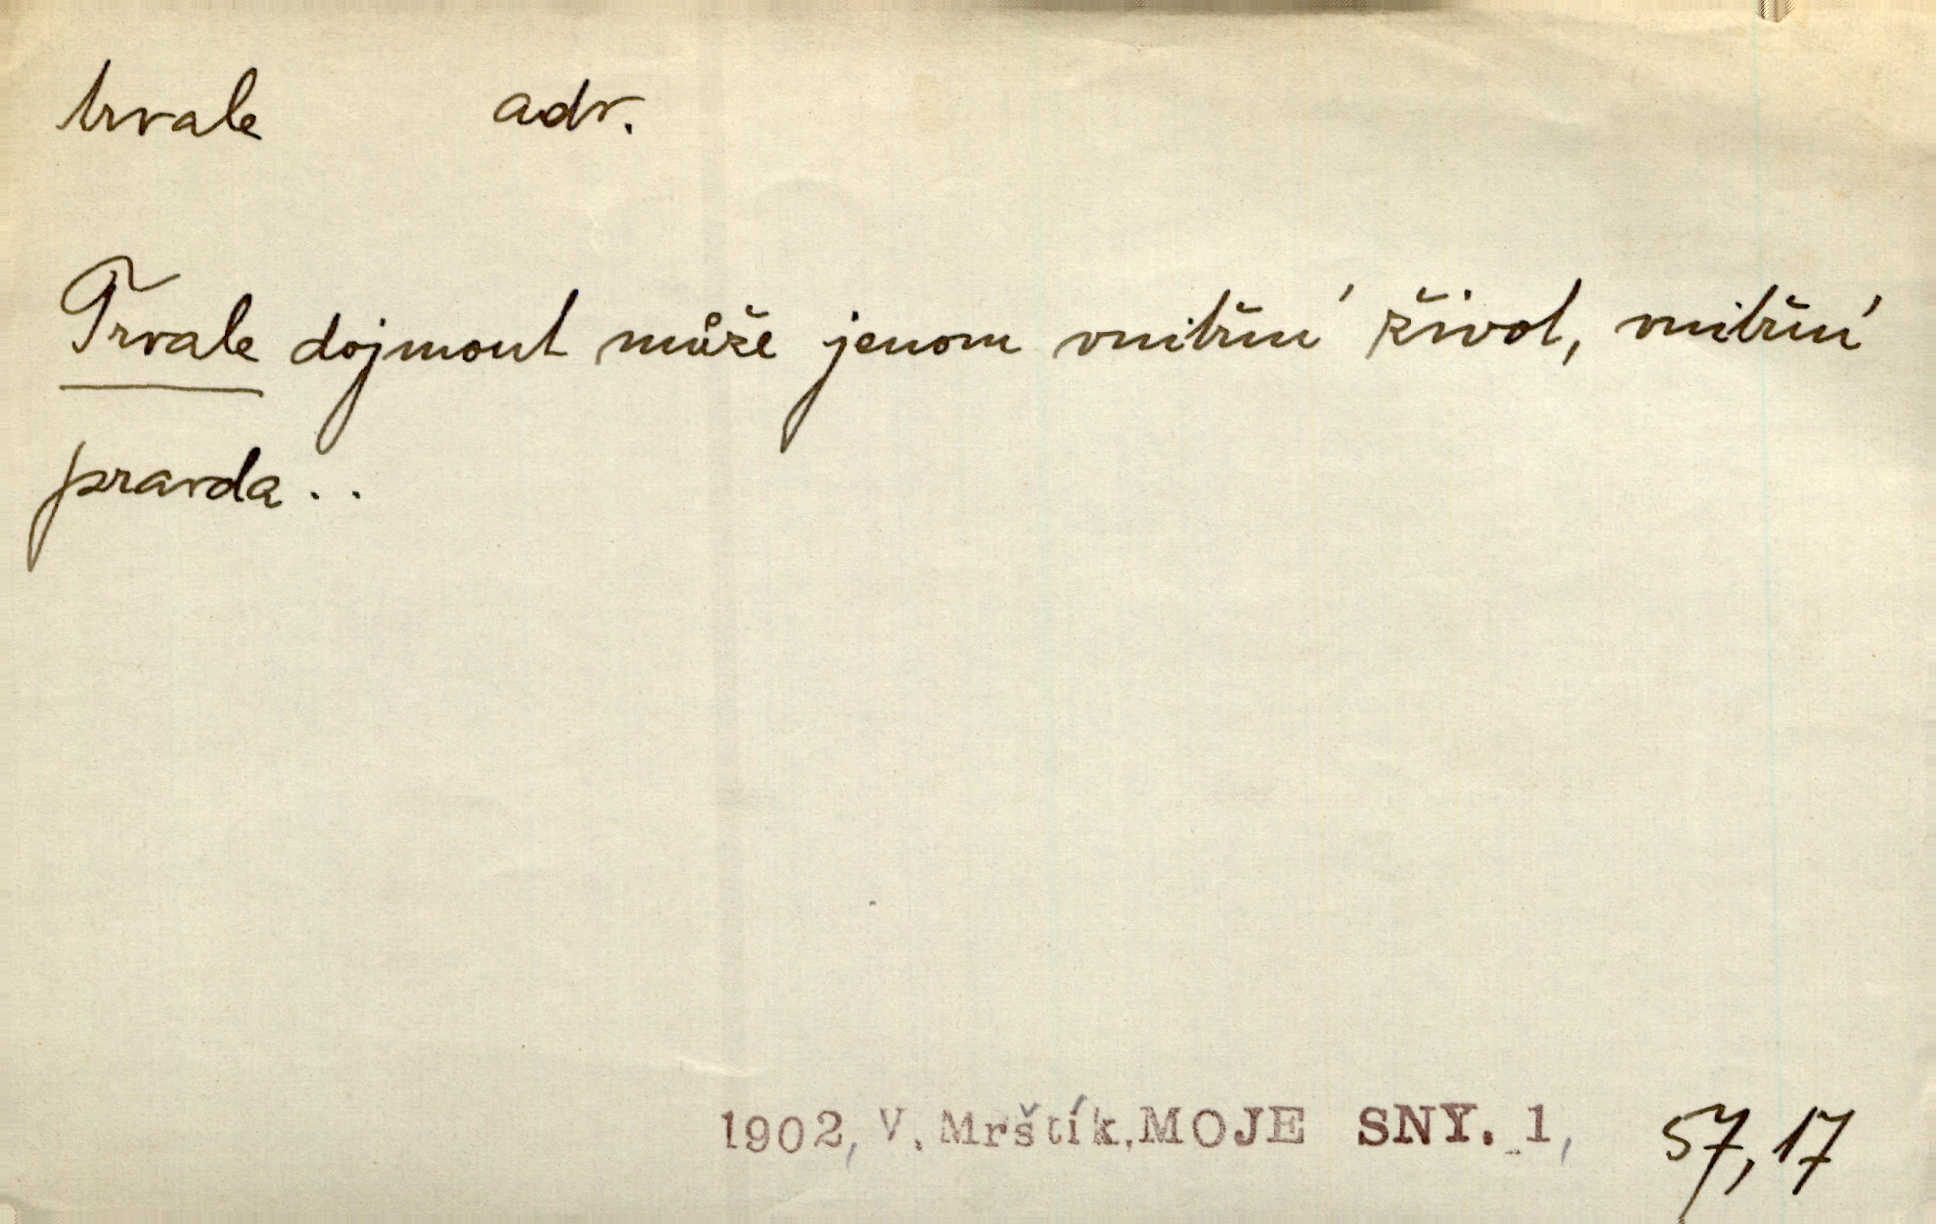 trvale adv.
Trvale dojmout může jenom vnitřní život, vnitřní
pravda . .
1902, V. Mrštík, MOJE SNY. 1, 57, 17